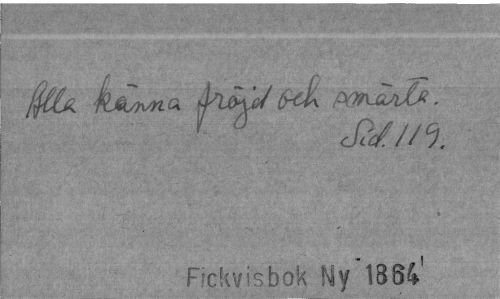 Alla känna fröjd och smärta.
Sid. 119.
Fickvisbok Ny 1864